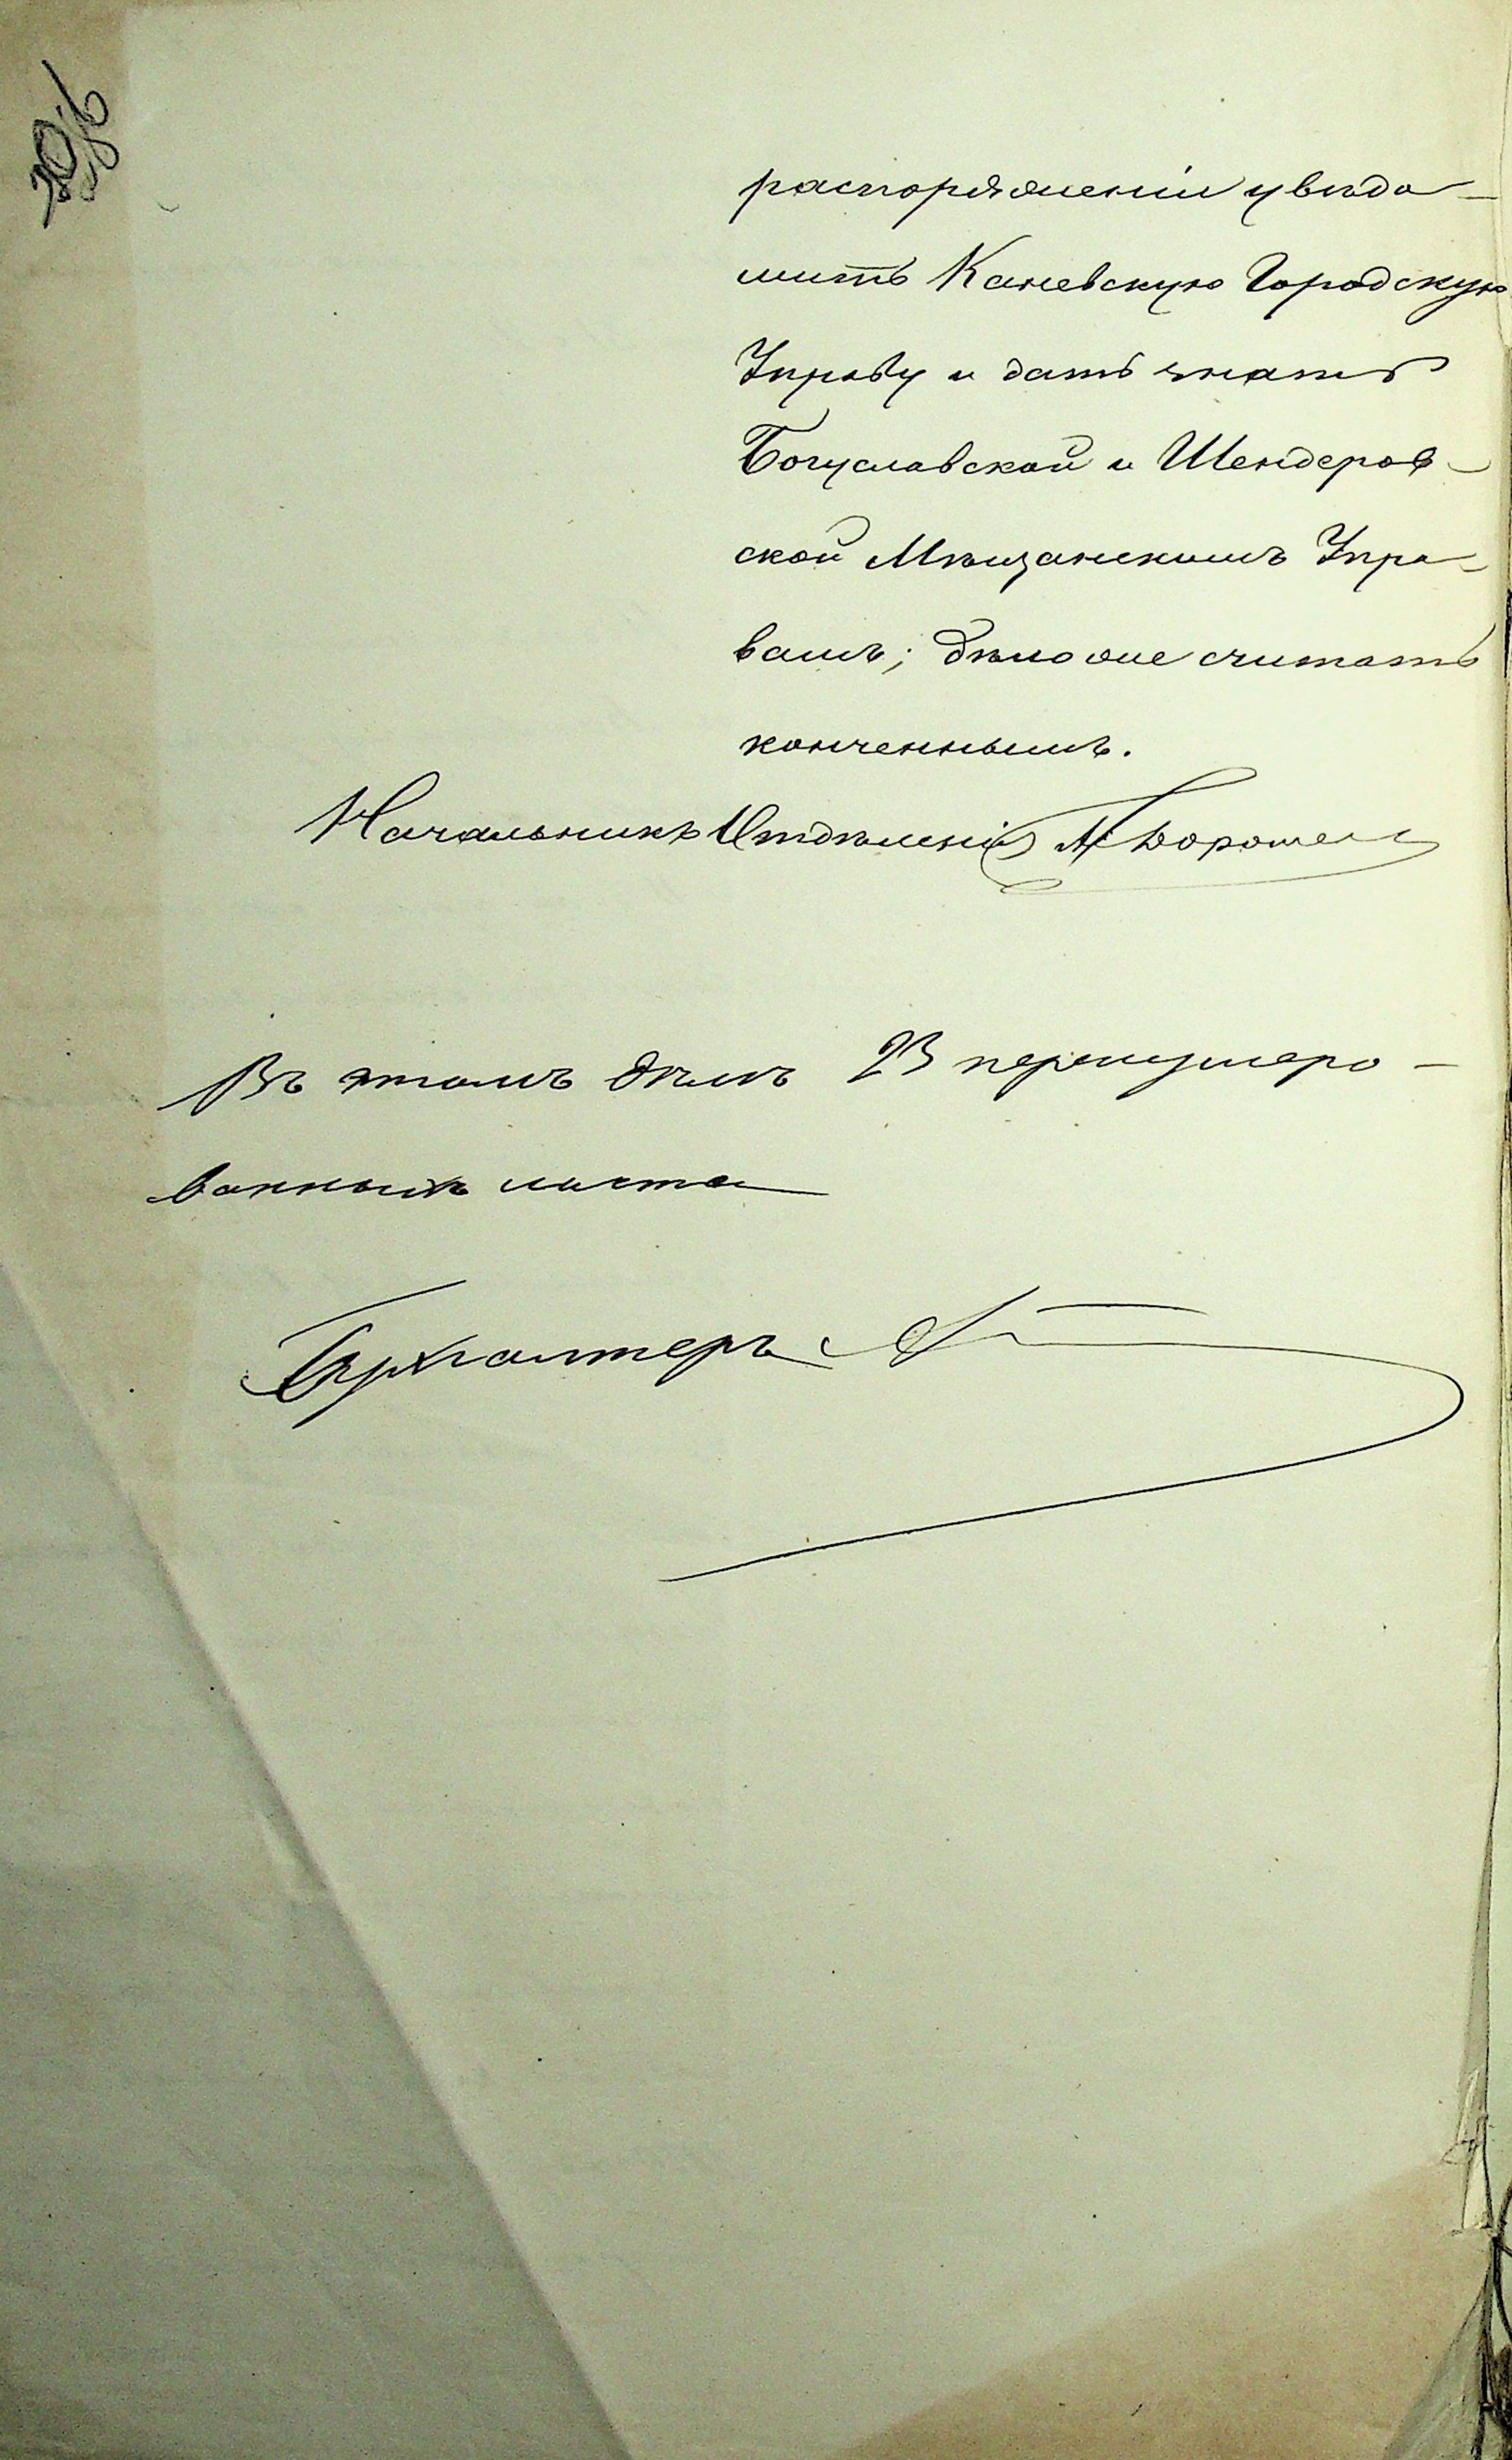 распоряженіи увѣдо-
мить Каневскую Городскую
Управу и дать знать
Богуславской и Шендеров-
ской Мѣщанскимъ Упра-
вамъ; дѣло же считать
конченнымъ.
Начальникъ Отдѣленія
Въ этомъ дѣлѣ 23 перенумеро-
ванныхъ листа
Бухгалтеръ